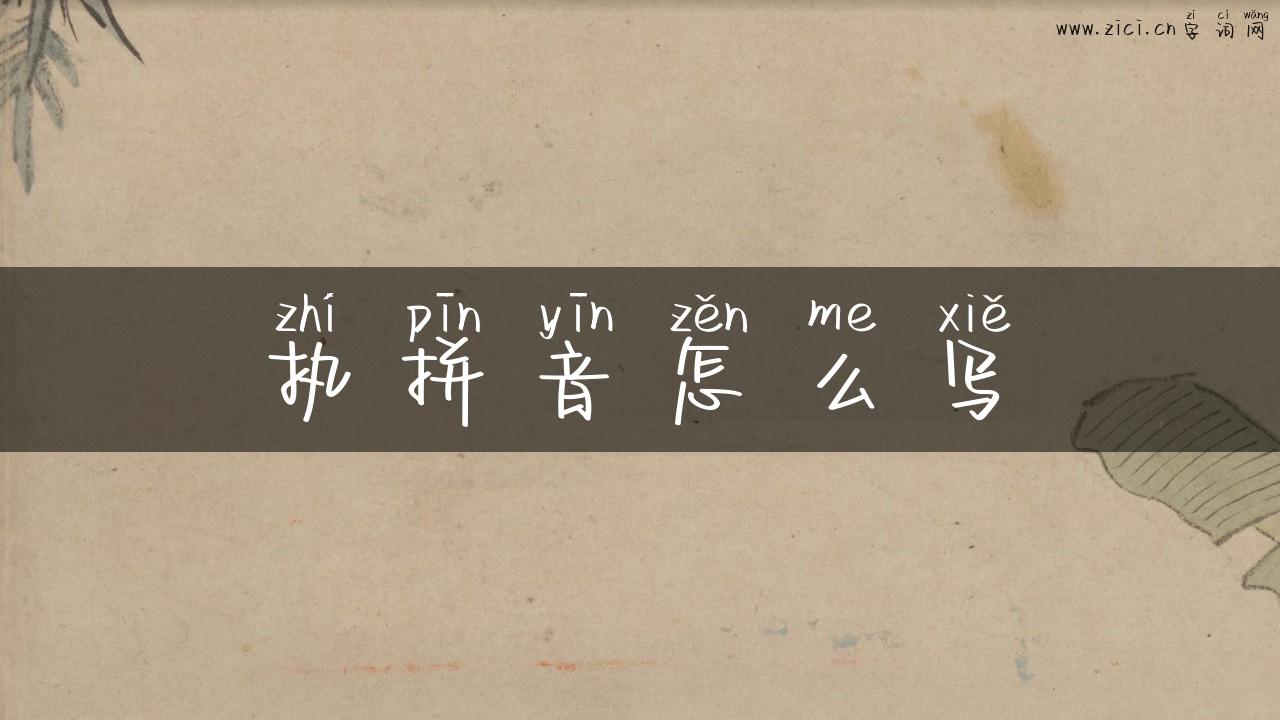 zì cí wǎng
www.zici.cn 字词网
zhí pīn yīn zěn me xiě
执拼音怎么写